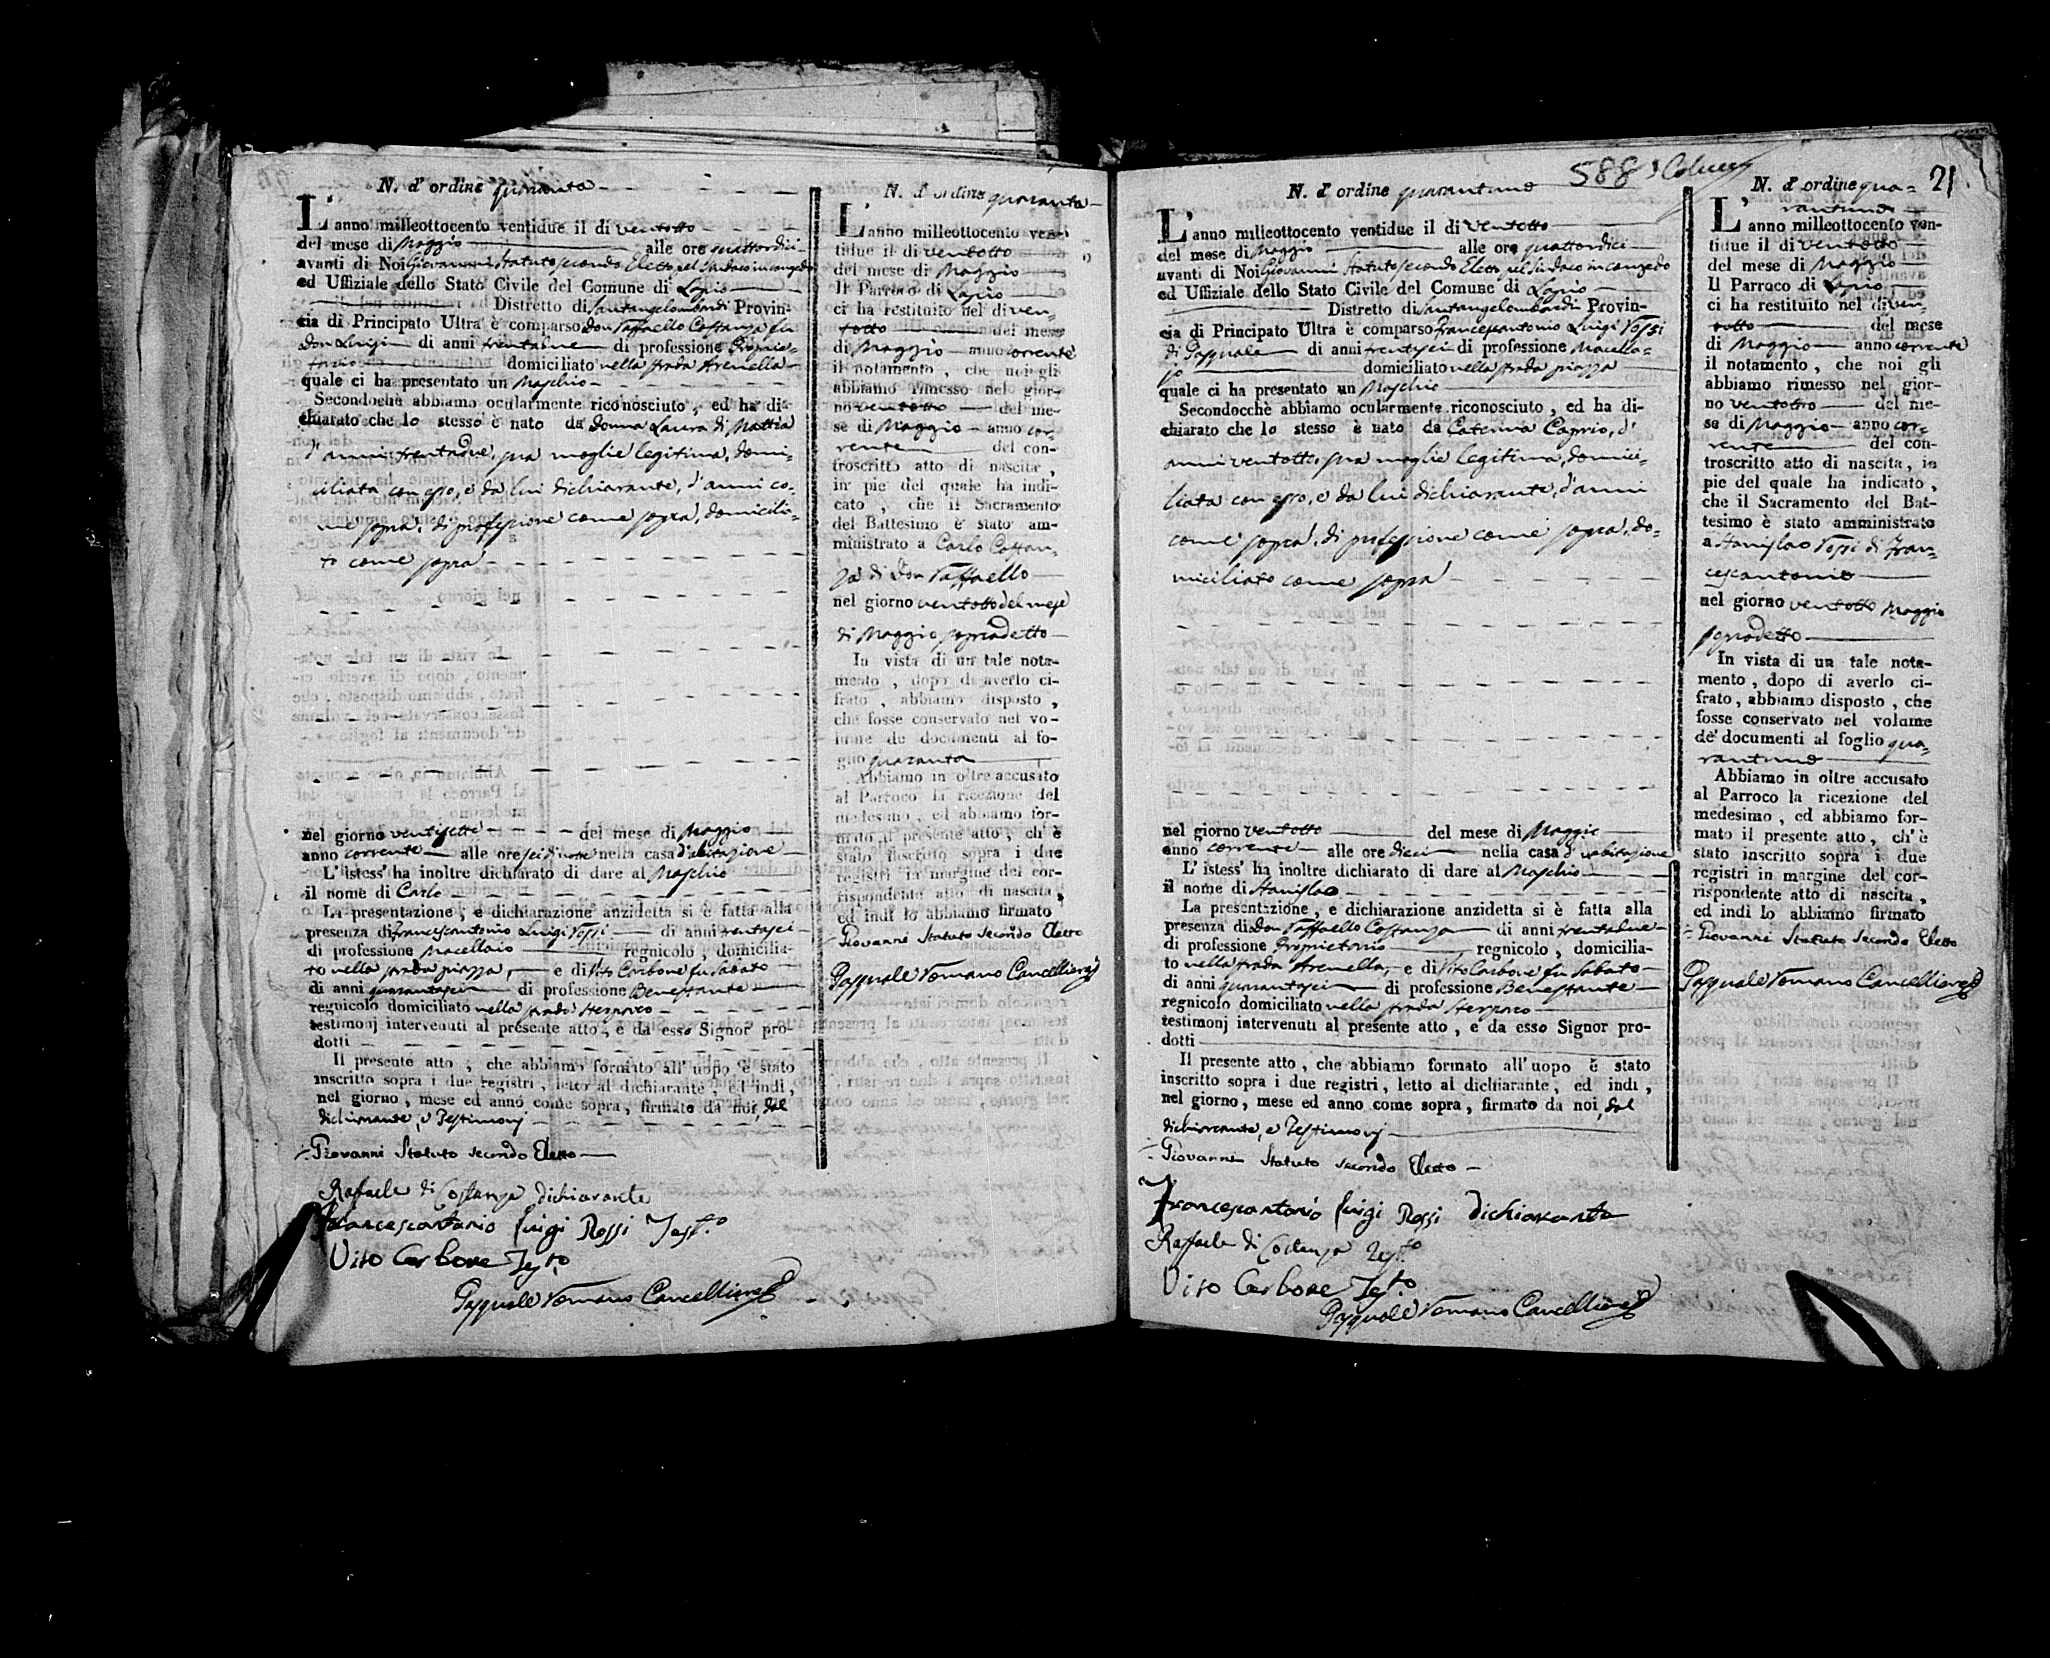 N. d' ordine quaranta
L' anno milleottocento ventidue il di ventotto
del mese di Maggio alle ore quattordici
avanti di Noi Giovanni Statuto secondo Eletto pel Sindaco in congedo
ed Uffiziale dello Stato Civile del Comune di Lapio
Distretto di Santangelombardi Provin-
cia di Principato Ultra è comparso Don Raffaello Costanza fu
Don Luigi di anni trentadue di professione Proprie-
tario domiciliato nella strada Arenella
quale ci ha presentato un Maschio
Secondochè abbiamo ocularmente riconosciuto, ed ha di-
chiarato che lo stesso è nato da Donna Laura di Mattia
d'anni trentadue, sua moglie legitima, domi-
ciliata con esso, e da lui dichiarante, d'anni co-
me sopra, di professione come sopra, domicilia-
to come sopra
nel giorno ventisette del mese di Maggio
anno corrente alle ore sei d'notte nella casa d'abitazione
L' istess' ha inoltre dichiarato di dare al Maschio
il nome di Carlo
La presentazione, e dichiarazione anzidetta si è fatta alla
presenza di Francescantonio Luigi Rossi di anni trentasei
di professione Macellaio regnicolo, domicilia-
to nella strada piazza, e di Vito Carbone fu Sabato
di anni quarantasei di professione Benestante
regnicolo domiciliato nella strada
testimonj intervenuti al presente atto, e da esso Signor pro-
dotti
Il presente atto, che abbiamo formato all' uopo è stato
inscritto sopra i due registri, letto al dichiarante, ed indi,
nel giorno, mese ed anno come sopra, firmato da noi, dal
dichiarante, e Testimonj
Giovanni Statuto secondo Eletto
Raffaele di Costanza dichiarante
Francescantonio Luigi Rossi Test.o
Vito Carbone Test.o
Pasquale Romano Cancelliere
N. d' ordine quaranta
L' anno milleottocento ven-
tidue il di ventotto
del mese di Maggio
Il Parroco di Lapio
ci ha restituito nel di ven-
totto del mese
di Maggio anno corrente
il notamento, che noi gli
abbiamo rimesso nel gior-
no ventotto del me-
se di Maggio anno cor-
rente del con-
troscritto atto di nascita,
in piè del quale ha indi-
cato, che il Sacramento
del Battesimo è stato am-
ministrato a Carlo Costan-
za di Don Raffaello
nel giorno ventotto del mese
di Maggio sopradetto
In vista di un tale nota-
mento, dopo di averlo ci-
frato, abbiamo disposto,
che fosse conservato nel vo-
lume de' documenti al fo-
glio quaranta
Abbiamo in oltre accusato
al Parroco la ricezione del
medesimo, ed abbiamo for-
mato il presente atto, ch' è
stato inscritto sopra i due
registri in margine del cor-
rispondente atto di nascita,
ed indi lo abbiamo firmato
Giovanni Statuto secondo Eletto
Pasquale Romano Cancelliere
588
21
N. d' ordine quarantuno
L' anno milleottocento ventidue il di ventotto
del mese di Maggio alle ore quattordici
avanti di Noi Giovanni Statuto secondo Eletto pel Sindaco in congedo
ed Uffiziale dello Stato Civile del Comune di Lapio
Distretto di Santangelombardi Provin-
cia di Principato Ultra è comparso Francescantonio Luigi Rossi
di Pasquale di anni trentasei di professione Macella-
jo domiciliato nella strada piazza
quale ci ha presentato un Maschio
Secondocchè abbiamo ocularmente riconosciuto, ed ha di-
chiarato che lo stesso è nato da Caterina Caprio, d'
anni ventotto, sua moglie legitima, domici-
liata con esso, e da lui dichiarante, d'anni
come sopra, di professione come sopra, do-
miciliato come sopra
nel giorno ventotto del mese di Maggio
anno corrente alle ore dieci nella casa d'abitazione
L' istess' ha inoltre dichiarato di dare al Maschio
il nome di Stanislao
La presentazione, e dichiarazione anzidetta si è fatta alla
presenza di Don Raffaello Costanza di anni trentadue
di professione Proprietario regnicolo, domicilia-
to nella strada Arenella, e di Vito Carbone fu Sabato
di anni quarantasei di professione Benestante
regnicolo domiciliato nella strada
testimonj intervenuti al presente atto, e da esso Signor pro-
dotti
Il presente atto, che abbiamo formato all' uopo è stato
inscritto sopra i due registri, letto al dichiarante, ed indi,
nel giorno, mese ed anno come sopra, firmato da noi, dal
dichiarante, e Testimonj
Giovanni Statuto secondo Eletto
Francescantonio Luigi Rossi dichiarante
Raffaele di Costanza Test.o
Vito Carbone Test.o
Pasquale Romano Cancelliere
N. d' ordine qua-
rantuno
L' anno milleottocento ven-
tidue il di ventotto
del mese di Maggio
Il Parroco di Lapio
ci ha restituito nel di ven-
totto del mese
di Maggio anno corrente
il notamento, che noi gli
abbiamo rimesso nel gior-
no ventotto del me-
se di Maggio anno cor-
rente del con-
troscritto atto di nascita, in
piè del quale ha indicato,
che il Sacramento del Bat-
tesimo è stato amministrato
a Stanislao Rossi di Fran-
cescantonio
nel giorno ventotto Maggio
sopradetto
In vista di un tale nota-
mento, dopo di averlo ci-
frato, abbiamo disposto, che
fosse conservato nel volume
de' documenti al foglio qua-
rantuno
Abbiamo in oltre accusato
al Parroco la ricezione del
medesimo, ed abbiamo for-
mato il presente atto, ch' è
stato inscritto sopra i due
registri in margine del cor-
rispondente atto di nascita,
ed indi lo abbiamo firmato
Giovanni Statuto secondo Eletto
Pasquale Romano Cancelliere